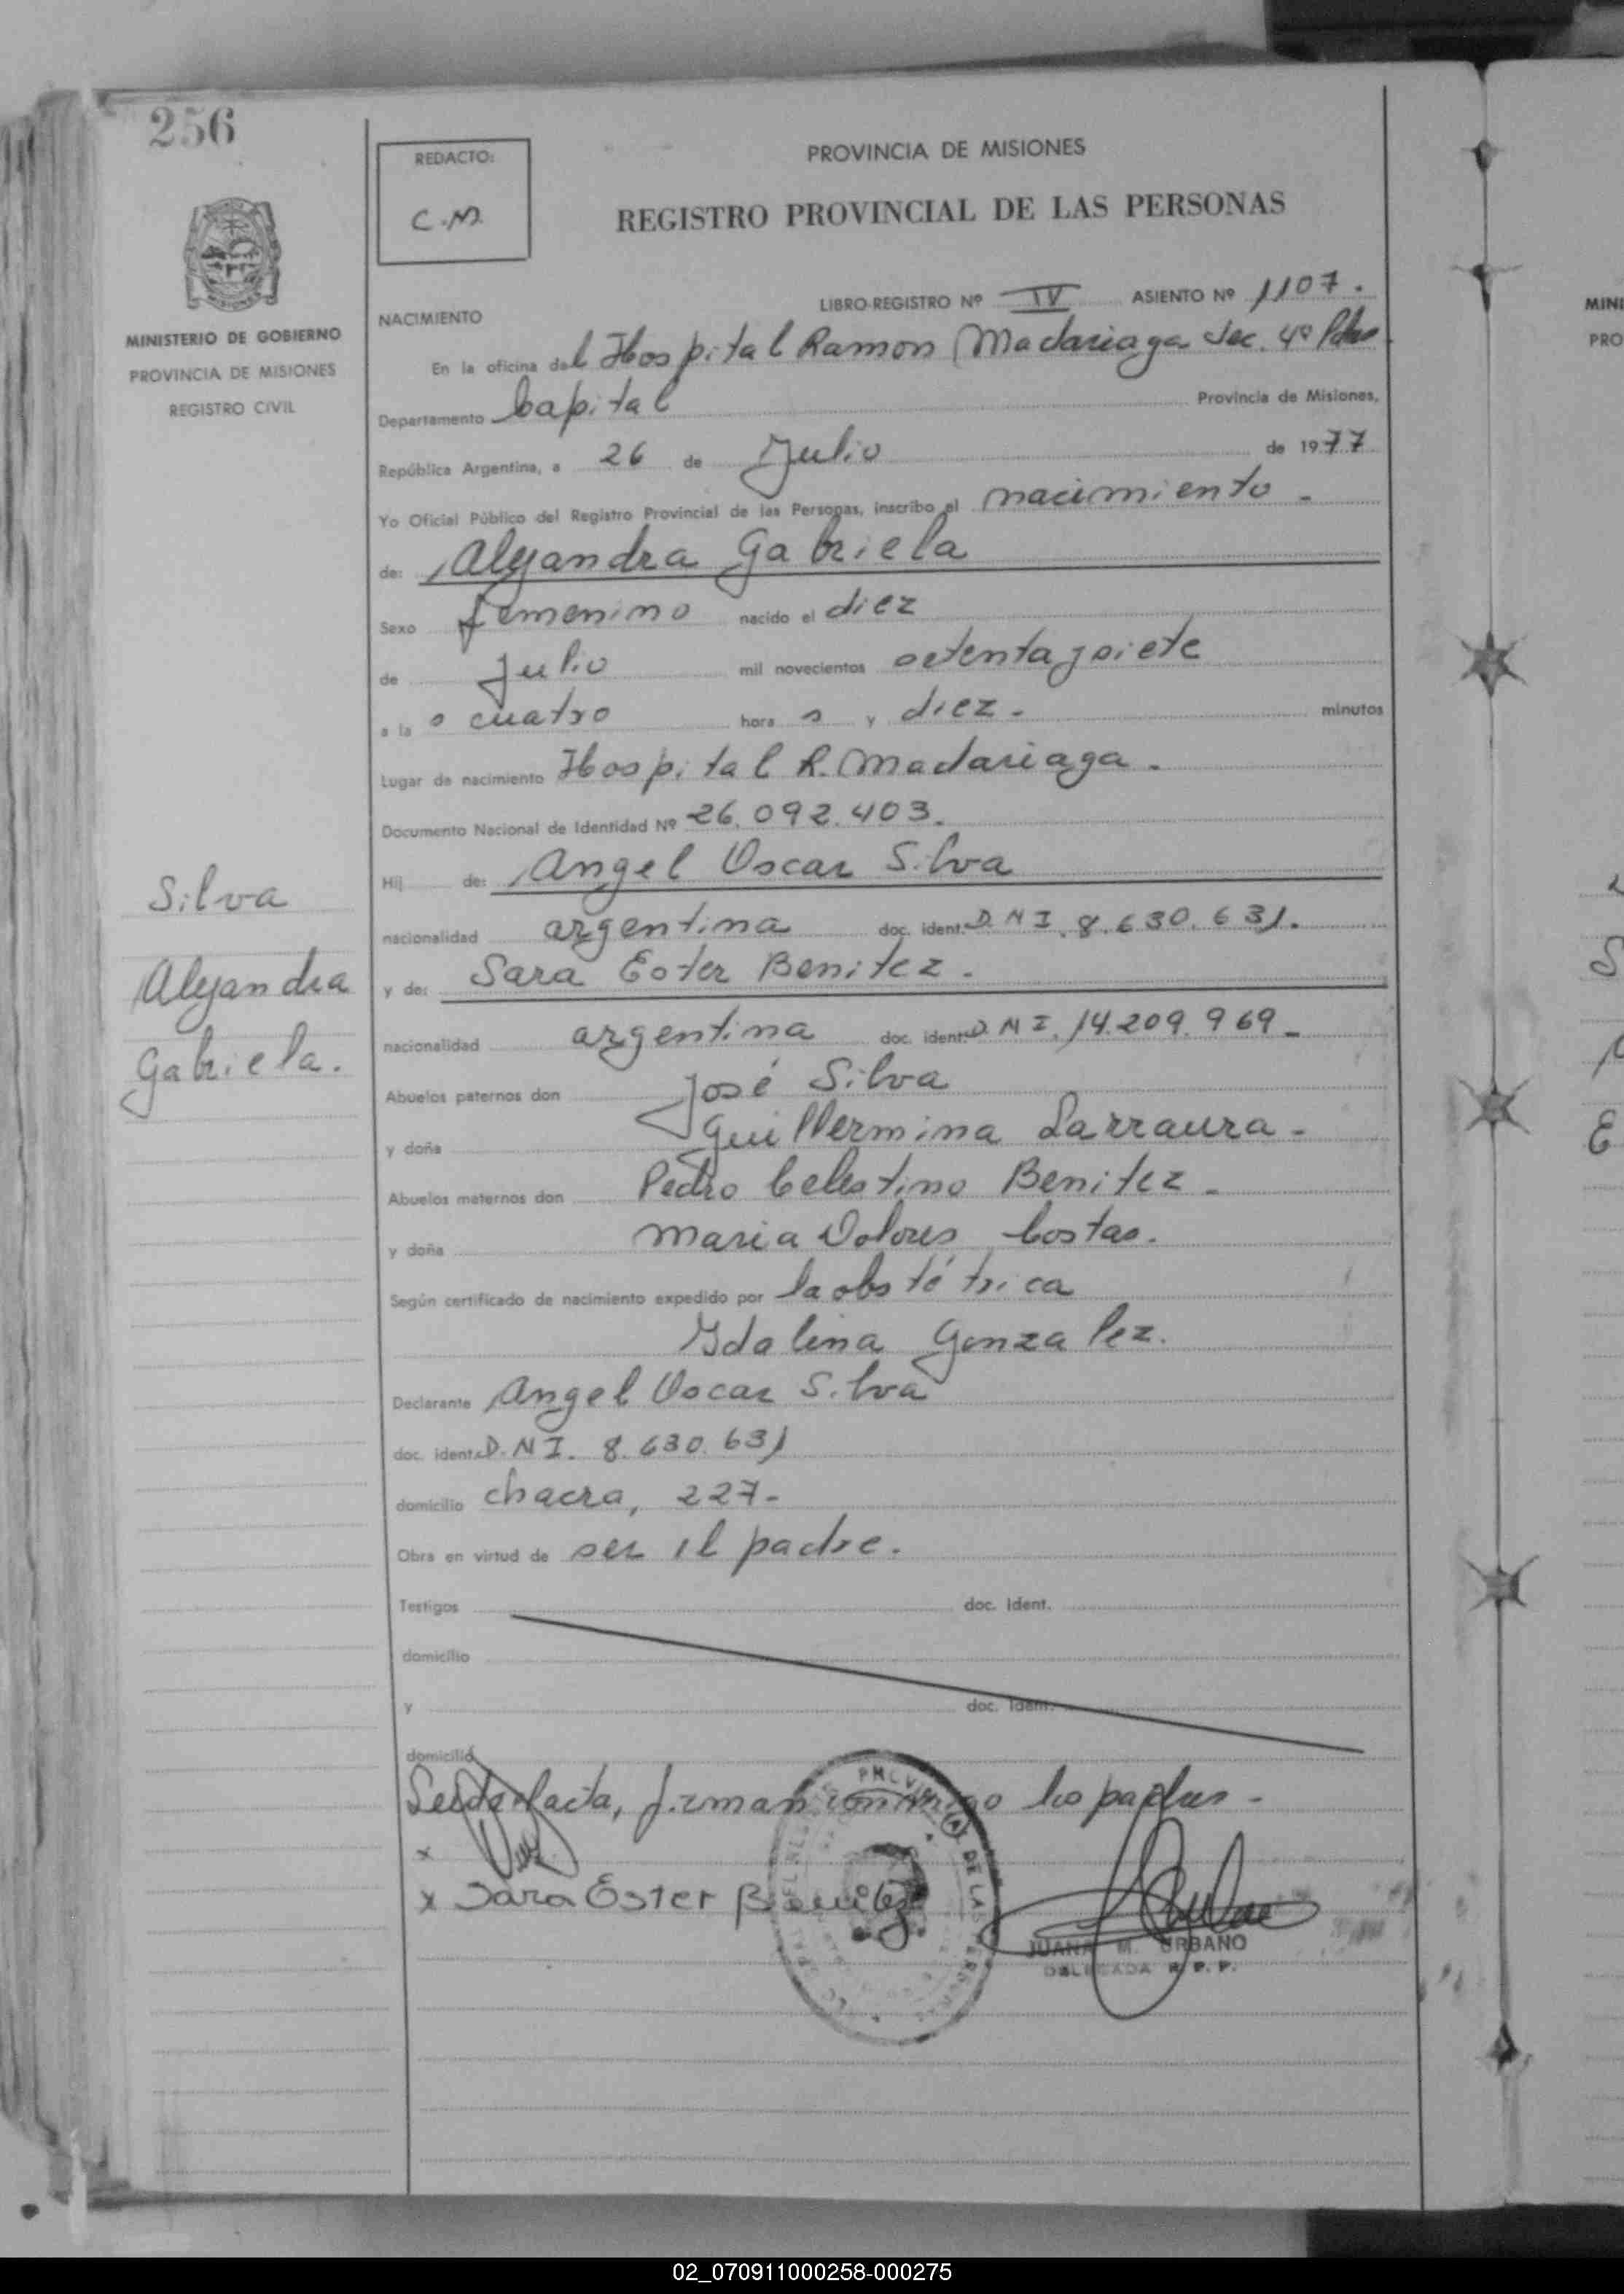 256
REDACTO:
C.M.
PROVINCIA DE MISIONES
REGISTRO PROVINCIAL DE LAS PERSONAS
MINISTERIO DE GOBIERNO
PROVINCIA DE MISIONES
REGISTRO CIVIL
LIBRO-REGISTRO Nº IV ASIENTO Nº 1107.
NACIMIENTO
En la oficina del Hospital Ramon Madariaga Sec. 4º Pdas
Departamento Capital Provincia de Misiones,
República Argentina, a 26 de Julio de 1977
Yo Oficial Público del Registro Provincial de las Personas, inscribo el nacimiento -
de: Alejandra Gabriela
Sexo femenino nacido el diez
de Julio mil novecientos setenta y siete
a la s cuatro hora s y diez - minutos
Lugar de nacimiento Hospital R. Madariaga -
Documento Nacional de Identidad Nº 26.092.403.
Hij de: Angel Oscar Silva
nacionalidad argentina doc. ident. D.N.I. 8.630.631.
y de: Sara Ester Benitez -
nacionalidad argentina doc. ident. D.N.I. 14.209.969 -
Abuelos paternos don José Silva
y doña Guillermina Larraura -
Abuelos maternos don Pedro Celestino Benitez -
y doña Maria Dolores Costas.
Según certificado de nacimiento expedido por la obstétrica
Idalina Gonzalez.
Declarante Angel Oscar Silva
doc. ident. D.N.I. 8.630.631
domicilio chacra, 227-
Obra en virtud de ser el padre.
Testigos doc. Ident.
domicilio
y doc. Ident.
domicilio
Leida el acta, firman conmigo los padres -
x
x Sara Ester Benitez
JUANA M. URBANO
DELEGADA R. P. P.
Silva
Alejandra
Gabriela.
02_070911000258-000275